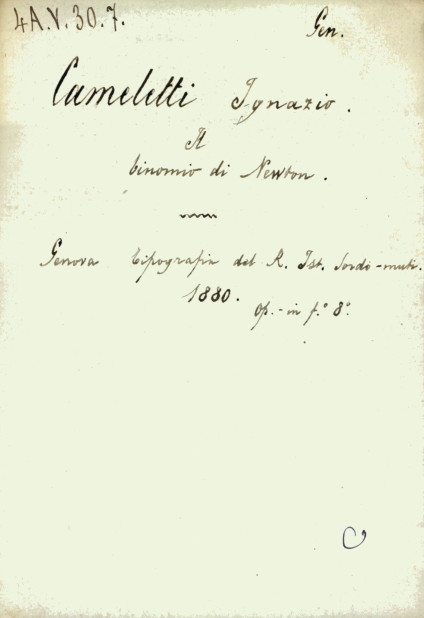 4A.V.30.7.
Gen.
Cameletti Ignazio.
Il
binomio di Newton.
Genova tipografia del R. Ist. Sordo-muti.
1880.
Op.-in f.° 8°.